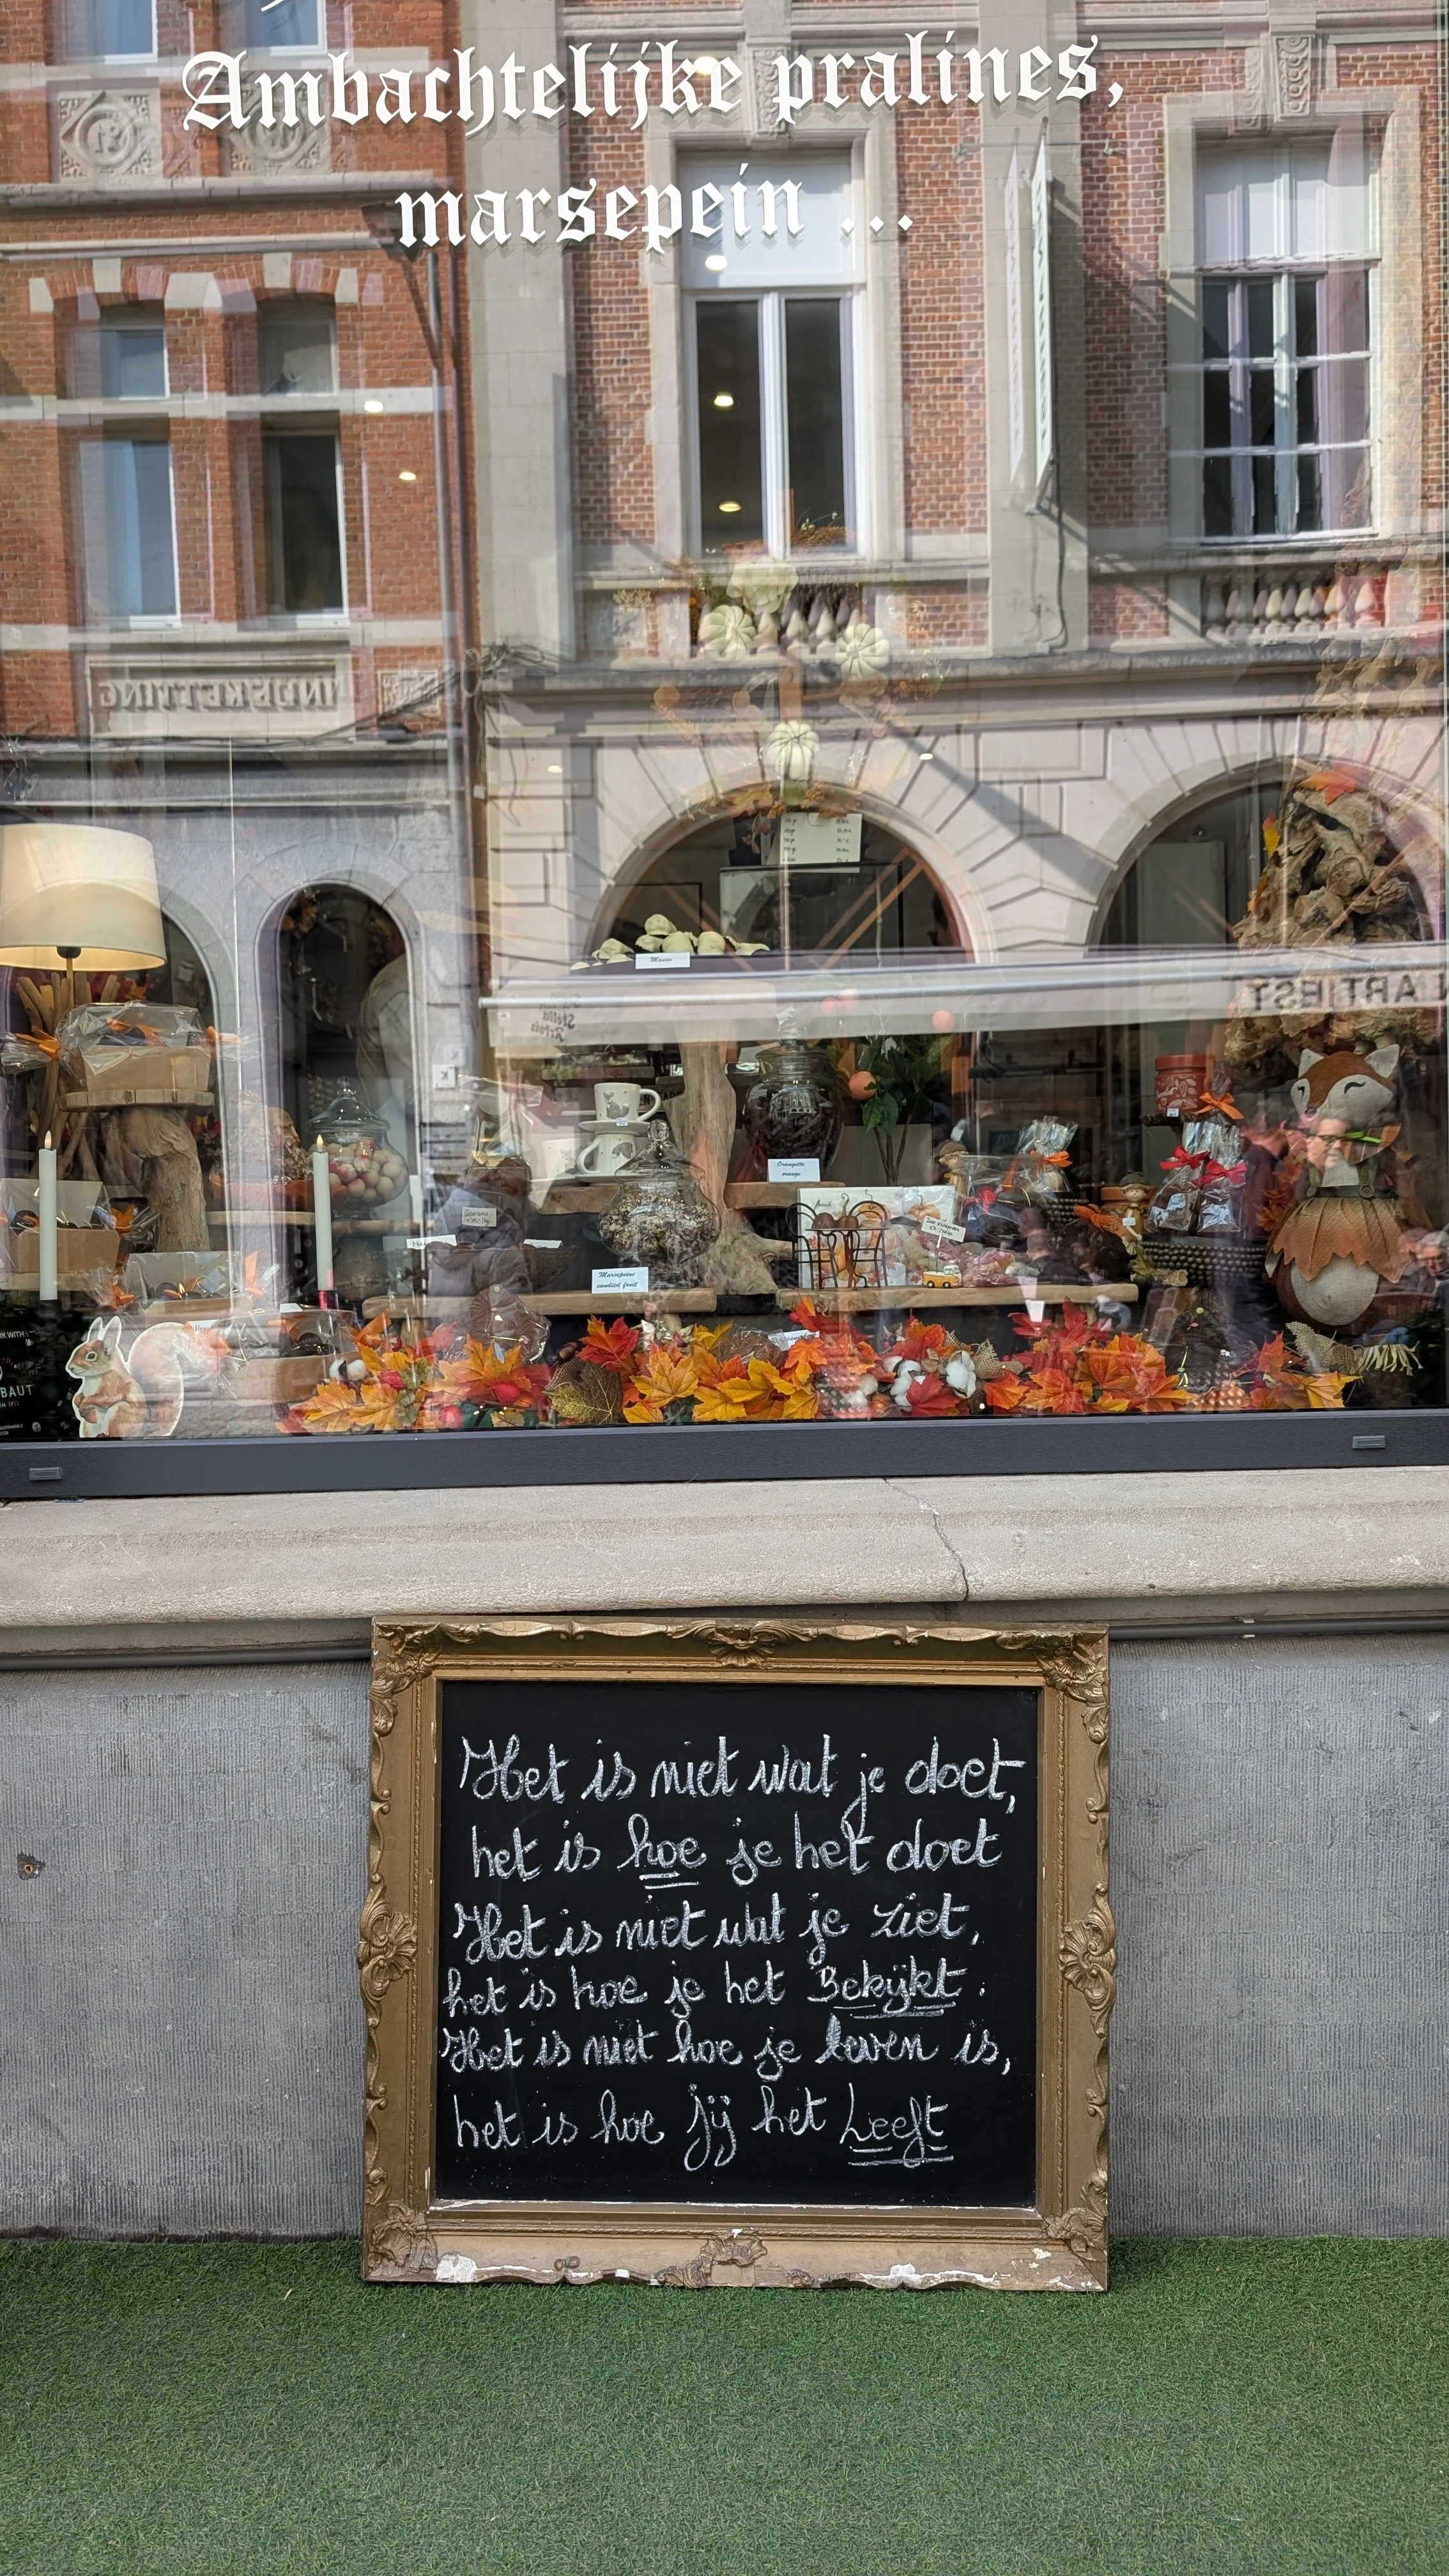 Ambachtelijke pralines,
marsepein ...
INDEKETTING
Stella
Artois
ARTIEST
Manon
Orangette
orange
Marsepeine
candied fruit
BAUT
Het is niet wat je doet,
het is hoe je het doet
Het is niet wat je ziet,
het is hoe je het Bekijkt.
Het is niet hoe je leven is,
het is hoe jij het Leeft